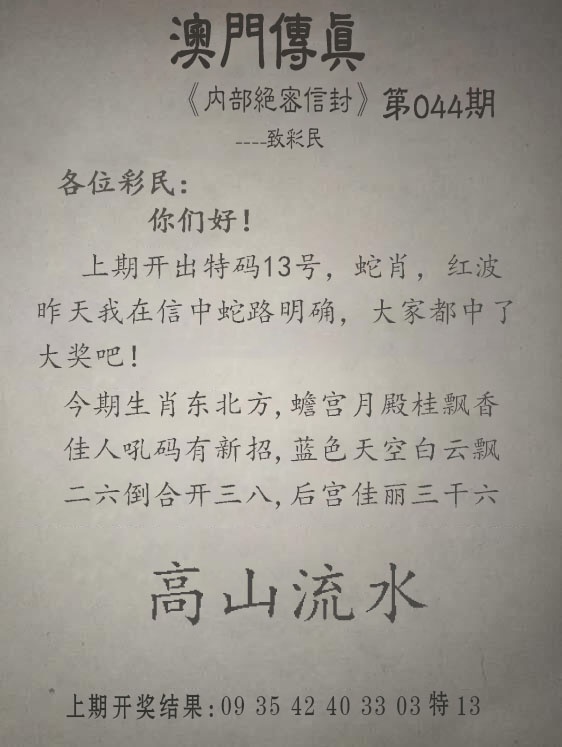 澳門傳眞
《内部絕密信封》第044期
----致彩民
各位彩民:
你们好!
上期开出特码13号，蛇肖，红波
昨天我在信中蛇路明确，大家都中了
大奖吧!
今期生肖东北方,蟾宫月殿桂飘香
佳人吼码有新招,蓝色天空白云飘
二六倒合开三八,后宫佳丽三干六
高山流水
上期开奖结果:09 35 42 40 33 03 特 13